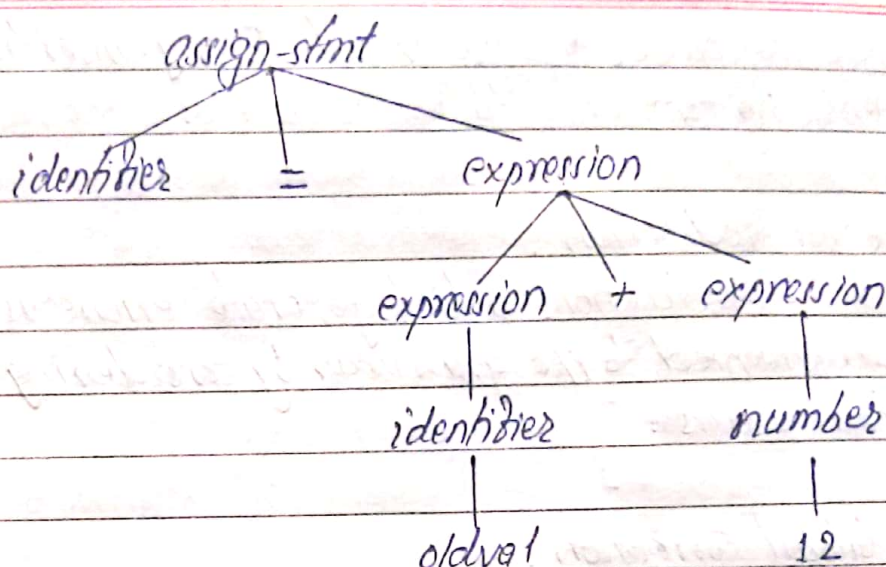 assign-stmt
identifier = expression
expression + expression
identifier number
oldval 12